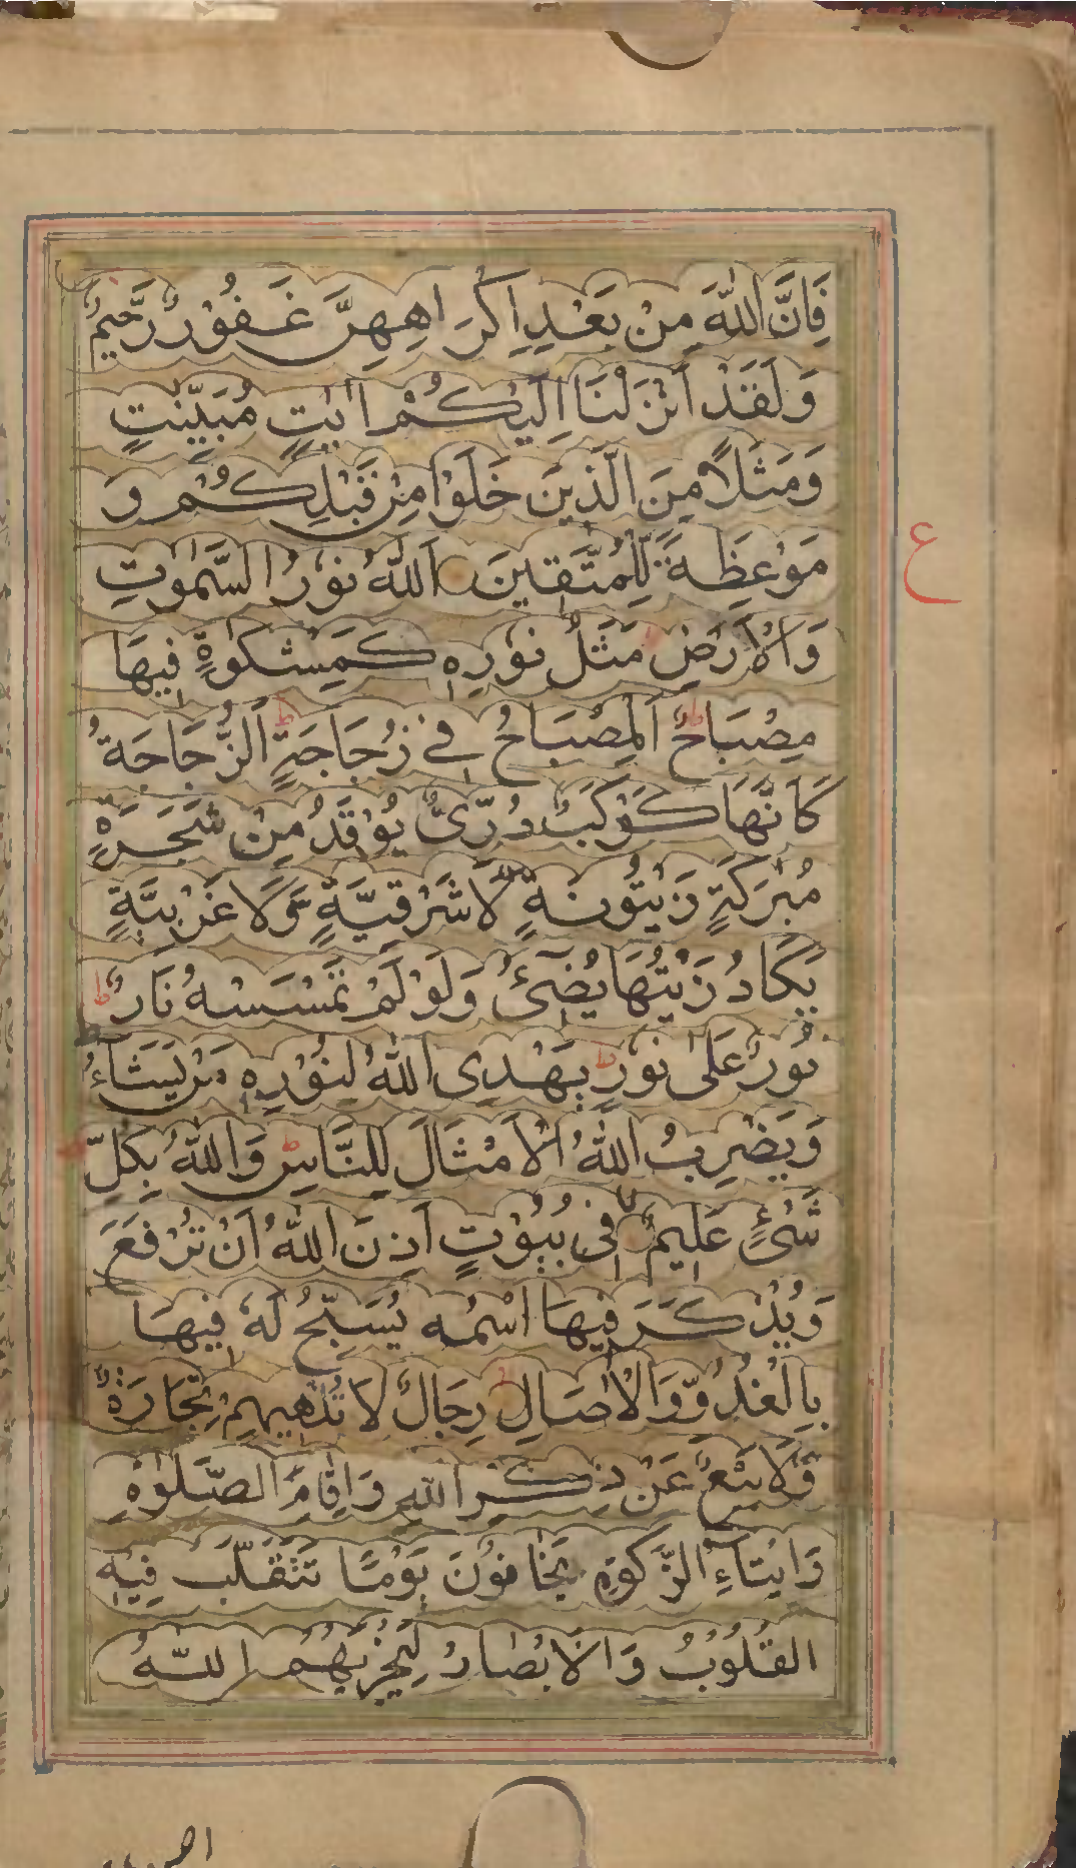 فَاِنَّ اللّٰهَ مِنْ بَعْدِ اِكْرَاهِهِنَّ غَفُوْرٌ رَّحِيْمٌ
وَلَقَدْ اَنْزَلْنَا اِلَيْكُمْ اٰيٰتٍ مُّبَيِّنٰتٍ
وَمَثَلًا مِّنَ الَّذِيْنَ خَلَوْا مِنْ قَبْلِكُمْ وَ
مَوْعِظَةً لِّلْمُتَّقِيْنَ اَللّٰهُ نُوْرُ السَّمٰوٰتِ
ع
وَالْاَرْضِ مَثَلُ نُوْرِهٖ كَمِشْكٰوةٍ فِيْهَا
مِصْبَاحٌ ط اَلْمِصْبَاحُ فِيْ زُجَاجَةٍ ط اَلزُّجَاجَةُ
كَاَنَّهَا كَوْكَبٌ دُرِّيٌّ يُّوْقَدُ مِنْ شَجَرَةٍ
مُّبٰرَكَةٍ زَيْتُوْنَةٍ لا لَّا شَرْقِيَّةٍ وَّلَا غَرْبِيَّةٍ
يَّكَادُ زَيْتُهَا يُضِيْٓءُ وَلَوْ لَمْ تَمْسَسْهُ نَارٌ ط
نُوْرٌ عَلٰى نُوْرٍ ط يَهْدِى اللّٰهُ لِنُوْرِهٖ مَنْ يَّشَآءُ
وَيَضْرِبُ اللّٰهُ الْاَمْثَالَ لِلنَّاسِ ط وَاللّٰهُ بِكُلِّ
شَىْءٍ عَلِيْمٌ لا فِىْ بُيُوْتٍ اَذِنَ اللّٰهُ اَنْ تُرْفَعَ
وَيُذْكَرَ فِيْهَا اسْمُهٗ يُسَبِّحُ لَهٗ فِيْهَا
بِالْغُدُوِّ وَالْاٰصَالِ رِجَالٌ لَّا تُلْهِيْهِمْ تِجَارَةٌ
وَّلَا بَيْعٌ عَنْ ذِكْرِ اللّٰهِ وَاِقَامِ الصَّلٰوةِ
وَاِيْتَآءِ الزَّكٰوةِ يَخَافُوْنَ يَوْمًا تَتَقَلَّبُ فِيْهِ
الْقُلُوْبُ وَالْاَبْصَارُ لِيَجْزِيَهُمُ اللّٰهُ